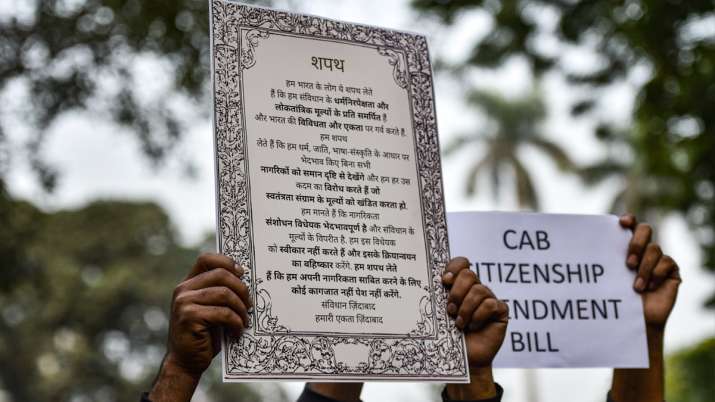 शपथ
हम भारत के लोग ये शपथ लेते
हैं कि हम संविधान के धर्मनिरपेक्षता और
लोकतांत्रिक मूल्यों के प्रति समर्पित हैं
और भारत की विविधता और एकता पर गर्व करते है.
हम शपथ
लेते हैं कि हम धर्म, जाति, भाषा-संस्कृति के आधार पर
भेदभाव किए बिना सभी
नागरिकों को समान दृष्टि से देखेंगे और हम हर उस
कदम का विरोध करते हैं जो
स्वतंत्रता संग्राम के मूल्यों को खंडित करता हो.
हम मानते हैं कि नागरिकता
संशोधन विधेयक भेदभावपूर्ण है और संविधान के
मूल्यों के विपरीत है. हम इस विधेयक
को स्वीकार नहीं करते हैं और इसके क्रियान्वयन
का बहिष्कार करेंगे. हम शपथ लेते
हैं कि हम अपनी नागरिकता साबित करने के लिए
कोई कागजात नहीं पेश नहीं करेंगे.
संविधान ज़िंदाबाद
हमारी एकता ज़िंदाबाद
CAB
ITIZENSHIP
ENDMENT
BILL